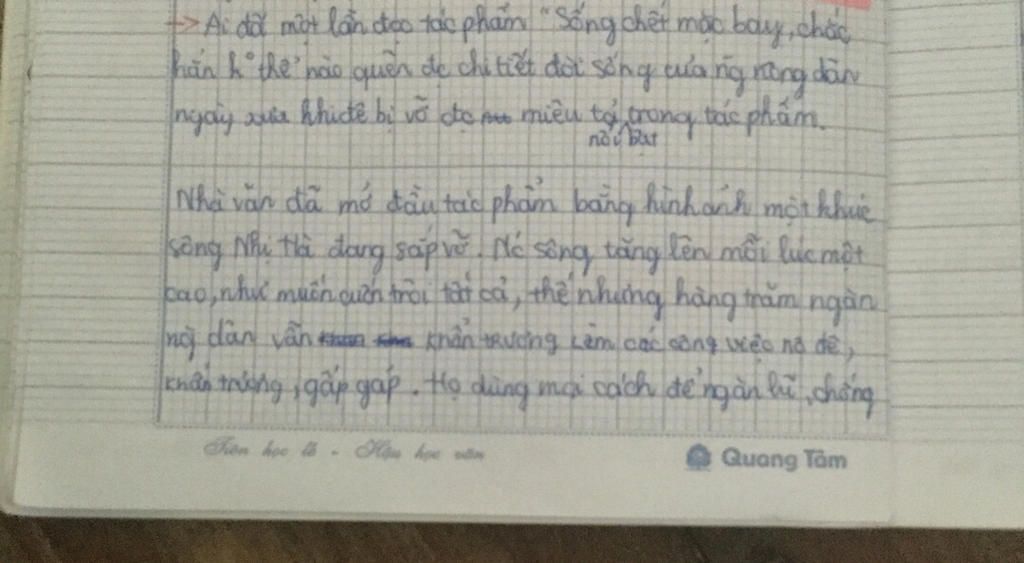 -> Ai đã một lần đọc tác phẩm "Sống chết mặc bay, chắc
hẳn k° thể nào quên đc chi tiết đời sống của ng nông dân
ngày xưa khi đê bị vỡ đc miêu tả trong tác phẩm.
nổi bật
Nhà văn đã mở đầu tác phẩm bằng hình ảnh một khúc
sông Nhị Hà đang sắp vỡ. Nc sông tăng lên mỗi lúc một
cao, như muốn cuốn trôi tất cả, thế nhưng hàng trăm ngàn
ng dân vẫn khẩn trương làm các công việc hộ đê,
khẩn trương, gấp gáp. Họ dùng mọi cách để ngăn lũ, chống
Tiên học lễ - Hậu học văn
Quang Tâm